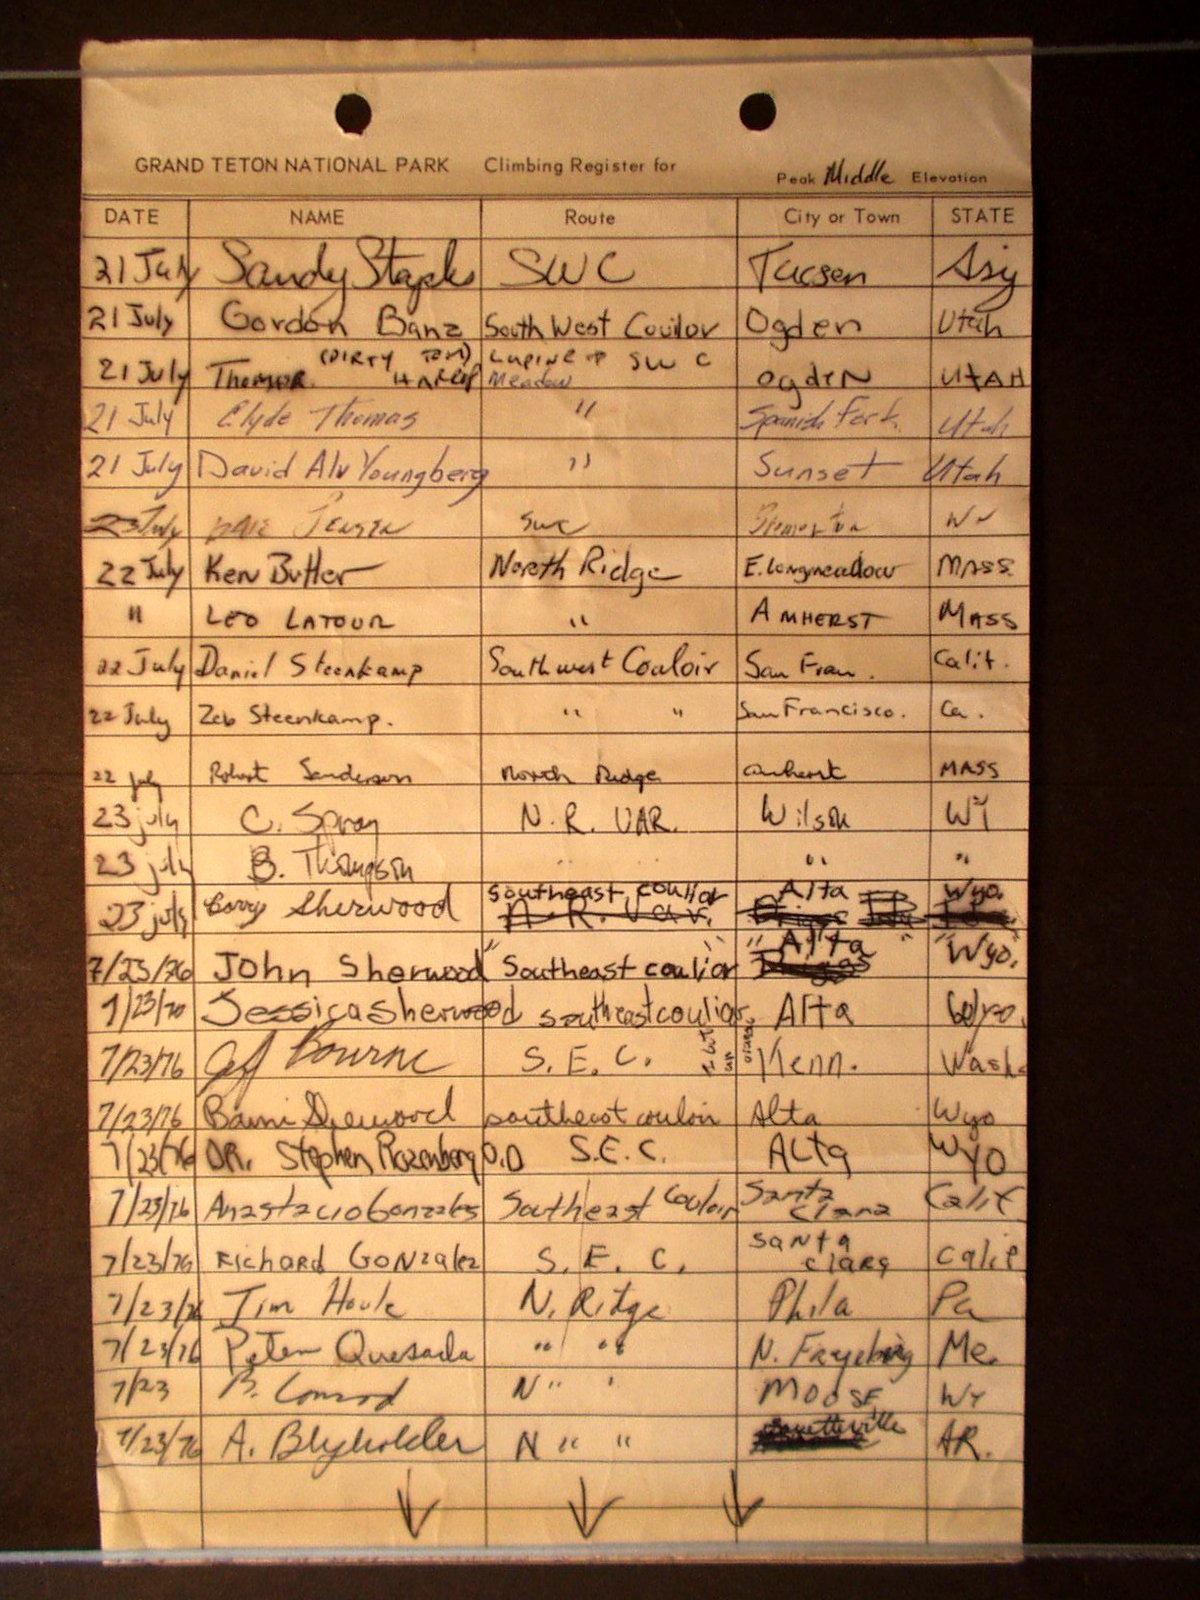 GRAND TETON NATIONAL PARK Climbing Register for Peak Middle Elevation
DATE NAME Route City or Town STATE
21 July Sandy Staples SWC Tucson
21 July Gordon Banz South West Coulior Ogden Utah
(DIRTY TOM) Lupine SWC
21 July Meadow OgdeN UtAH
21 July Clyde Thomas " Spanish Fork Utah
21 July David Alv Youngberg " Sunset Utah
July Jensen SWC
22 July Ken Butler North Ridge E. Longmeadow MASS
" LEO LATOUR " AMHERST MASS
22 July Daniel Steenkamp Southwest Couloir San Fran. Calif.
22 July Zeb Steenkamp. " " San Francisco. Ca.
22 july Robert Sanderson North Ridge Amherst MASS
23 july C. Spray N.R. VAR. Wilson WY
23 july B. Thompson " " " "
Southeast coulior Alta Wyo.
23 july Sherwood N.R. Var.
" Alta " "Wyo.
7/23/76 John Sherwood Southeast coulior Driggs
7/23/76 Jessica Sherwood southeast coulior Alta Wyo.
7/23/76 Jeff Bourne S.E.C. Kenn. Wash.
7/23/76 Sherwood southeast couloir Alta Wyo
7/23/76 DR. Stephen Rozenberg O.D S.E.C. ALta WYO
7/23/76 Anastacio Gonzales Southeast Couloir Santa Clara Calif
7/23/76 Richard GoNzalez S.E.C. SaNta Clara Calif
7/23/76 Jim Houle N. Ridge Phila Pa
7/23/76 Peter Quesada " " N. Fryeburg Me.
7/23 B. Conrod N" " MOOSE WY
7/23/76 A. Blyholder N " " Fayetteville AR.